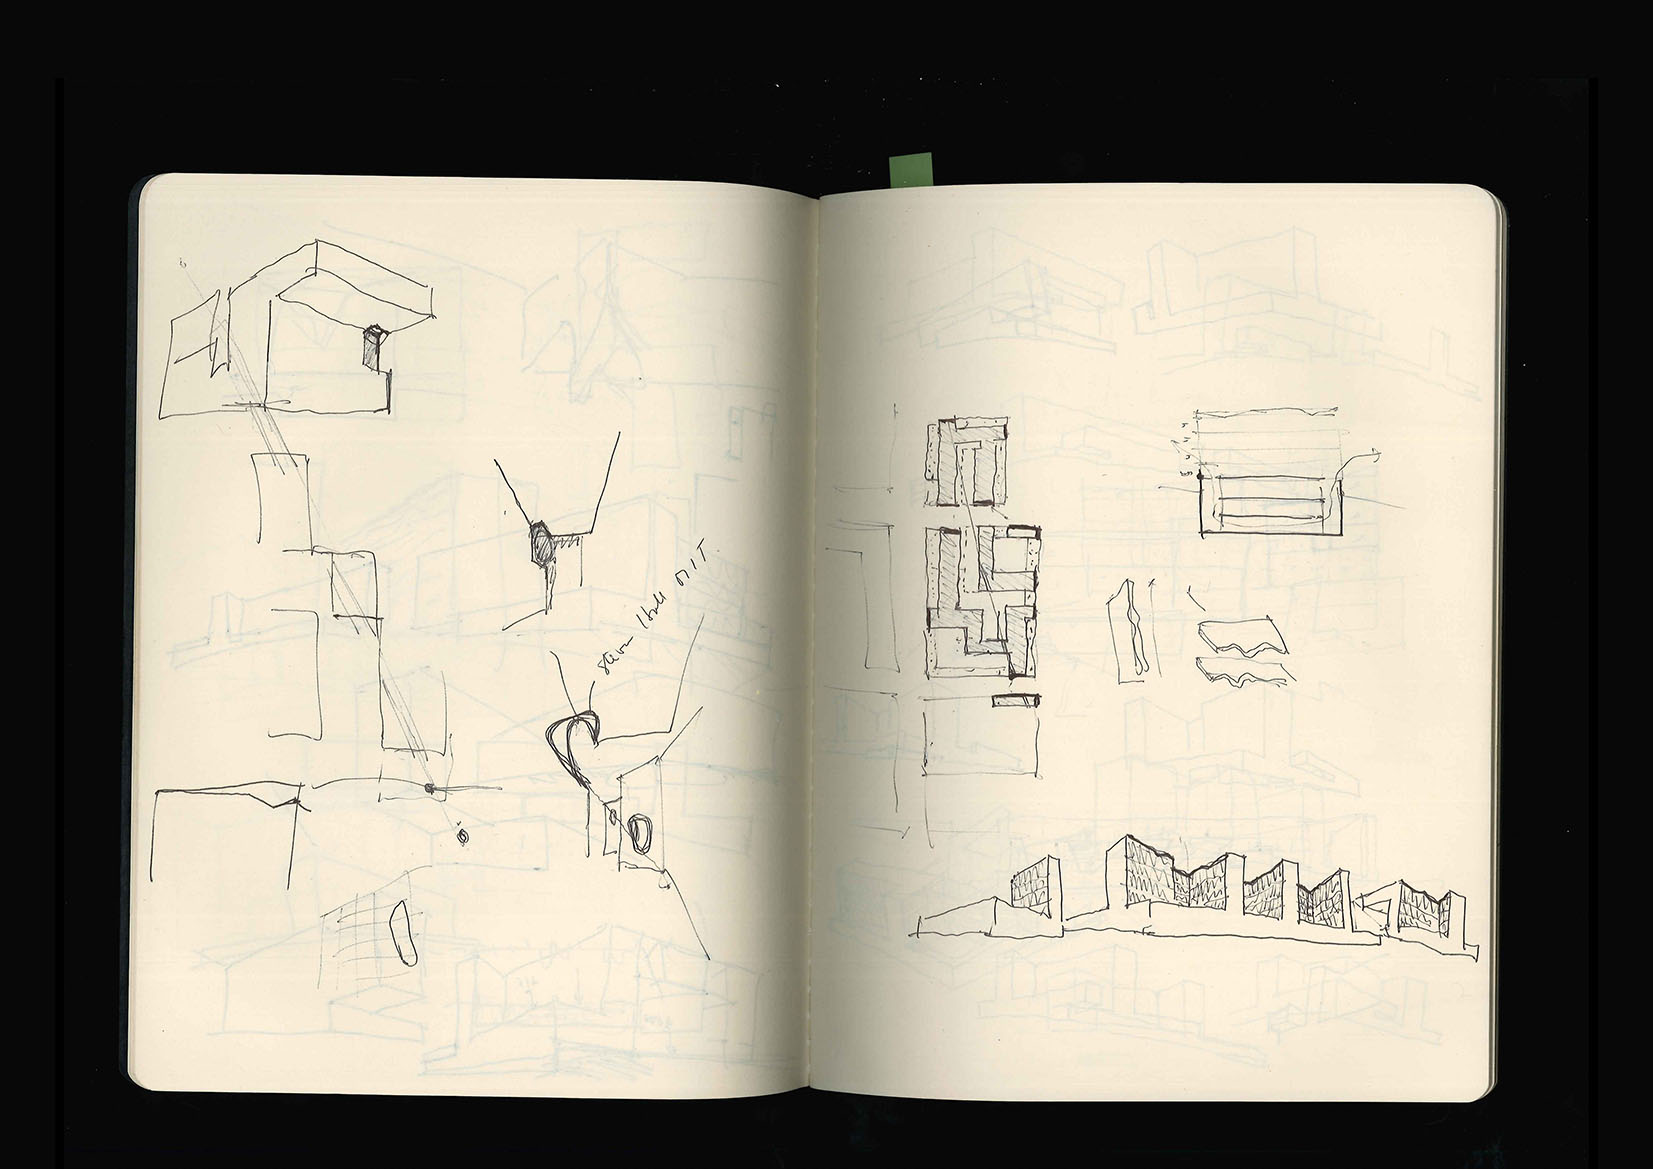 Steven Holl MIT